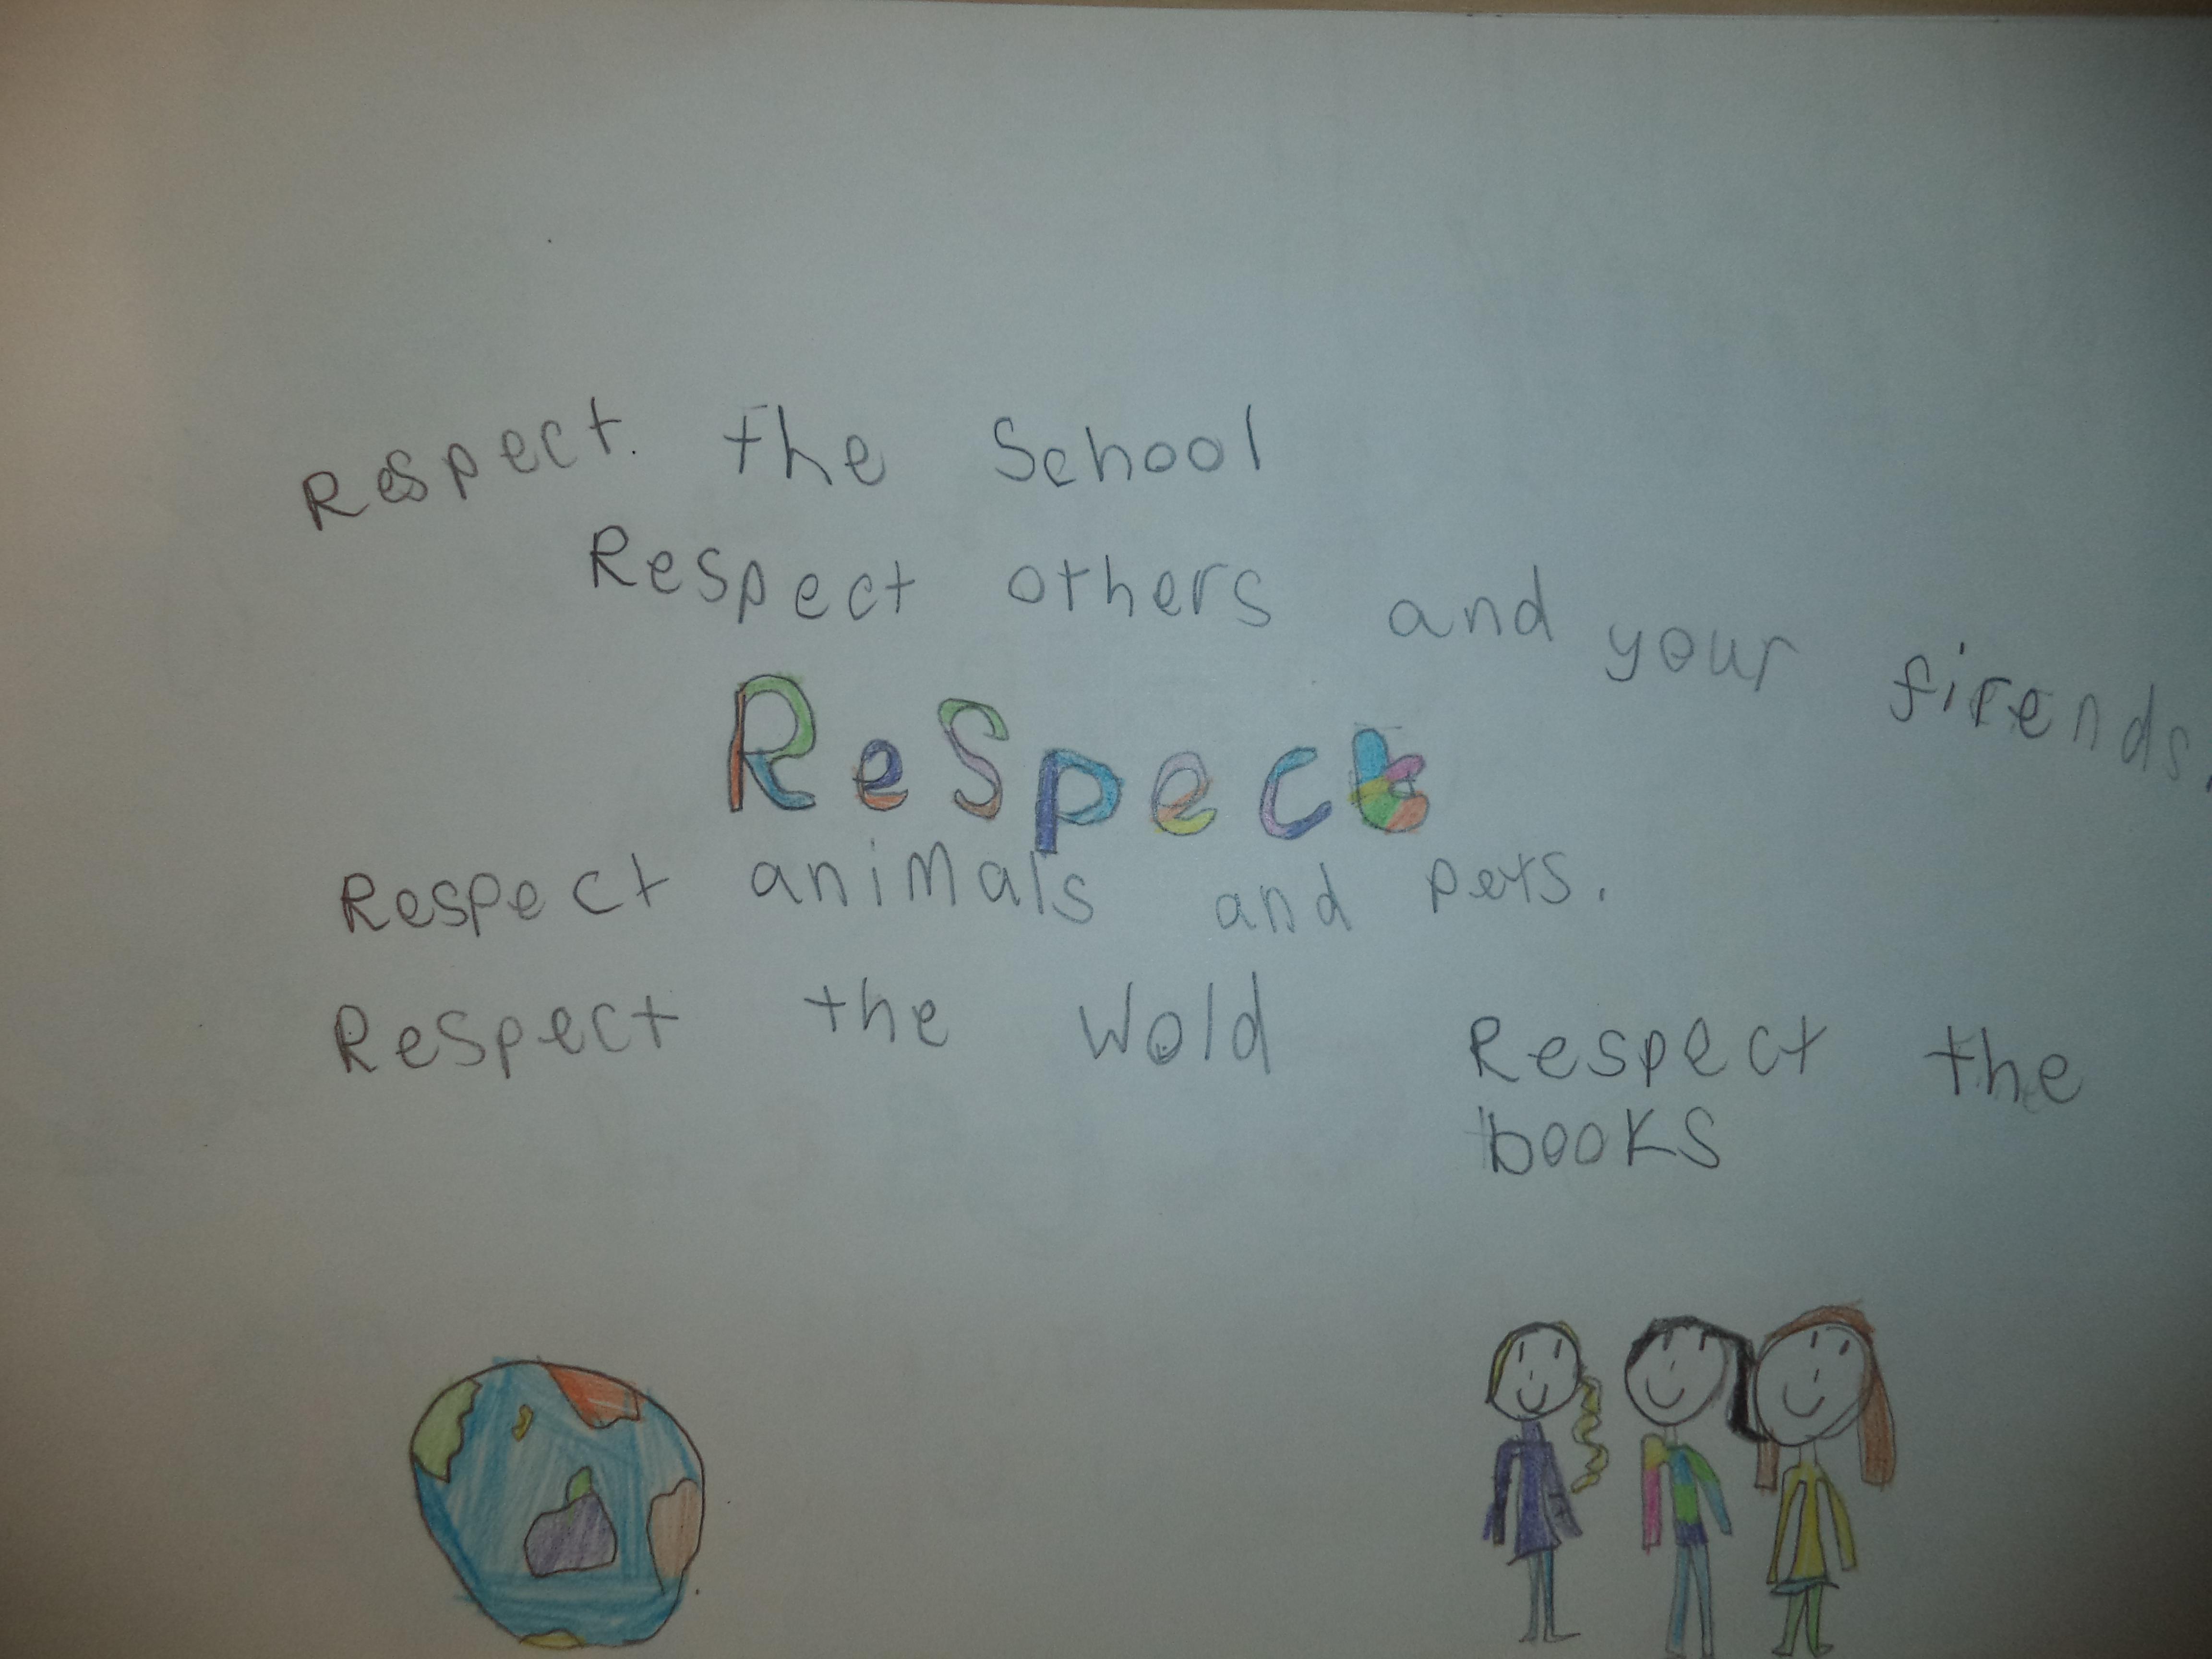 Respect. the School
Respect others and your firends.
ReSpect
Respect animals and pets.
Respect the Wold
Respect the
books